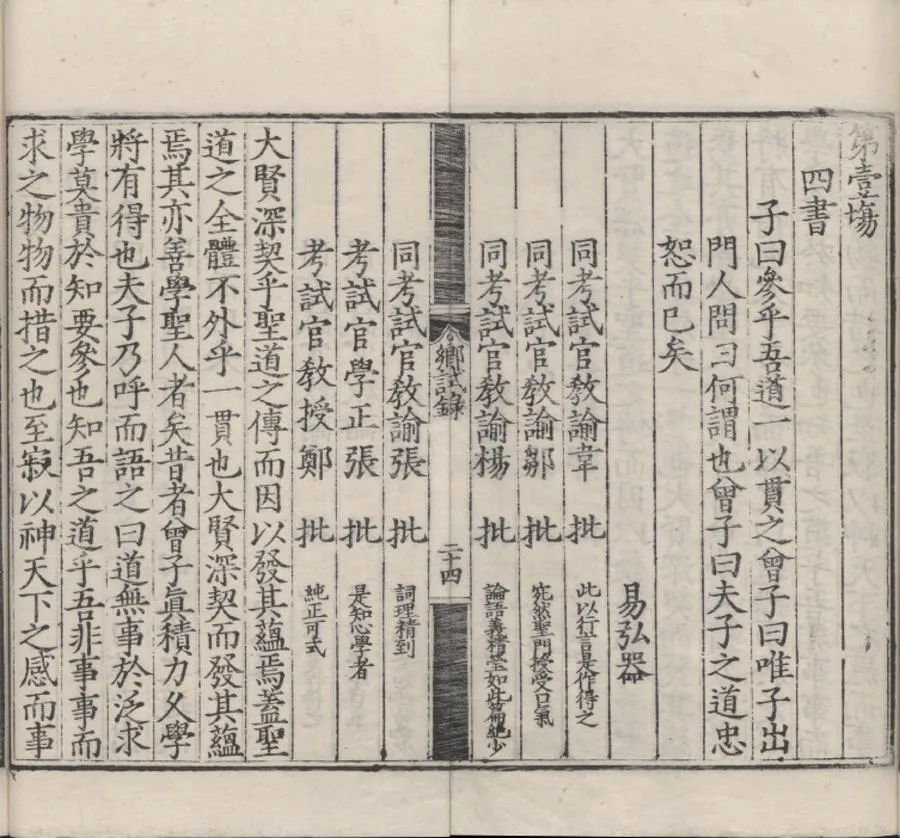 第壹塲
四書
子曰參乎吾道一以貫之曾子曰唯子出
門人問曰何謂也曾子曰夫子之道忠
恕而已矣
易弘器
同考試官敎諭韋 批 此以行言是作得之
同考試官敎諭鄒 批 宛然聖門授受口氣
同考試官敎諭楊 批 論語義精瑩如此篇絶少
鄉試錄 二十四
同考試官敎諭張 批 詞理精到
考試官學正張 批 是知心學者
考試官敎授鄭 批 純正可式
大賢深契乎聖道之傳而因以發其蘊焉蓋聖
道之全體不外乎一貫也大賢深契而發其蘊
焉其亦善學聖人者矣昔者曾子眞積力久學
將有得也夫子乃呼而語之曰道無事於泛求
學莫貴於知要參也知吾之道乎吾非事事而
求之物物而措之也至寂以神天下之感而事